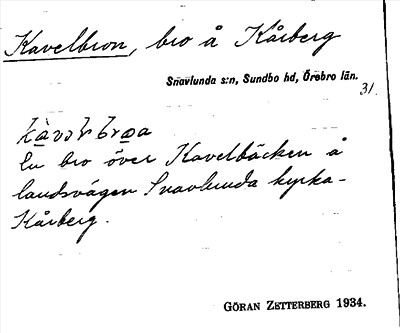 Kavelbron, bro å Kårberg
Snavlunda s:n, Sundbo hd, Örebro län.
31.
En bro över Kavelbäcken å
landsvägen Snavlunda kyrka-
Kårberg.
GÖRAN ZETTERBERG 1934.